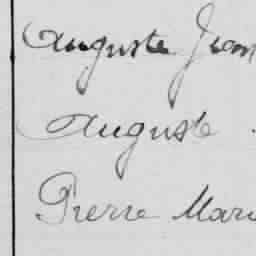 Auguste Jean
Auguste
Pierre Mari